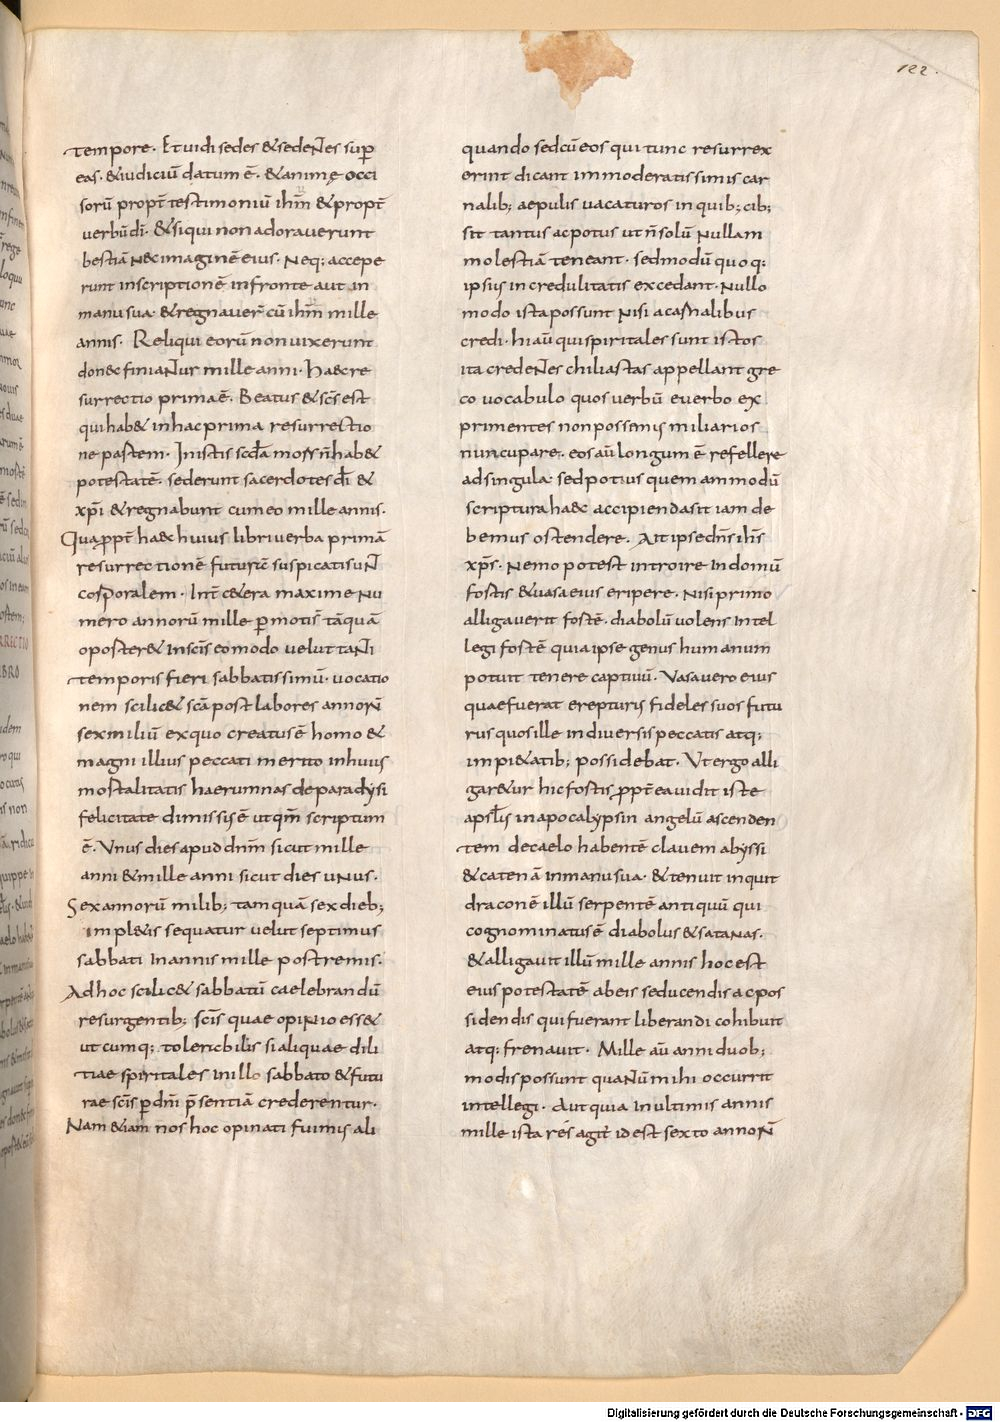 122.
tempore. Et uidi sedes & sedeNtes sup̄
eas. & iudiciū datum ē. & animę occi
sorū propt̄ testimoniū ihm̄ & propt̄
uerbū dī. & siqui non adorauerunt
bestiā nec imaginē eius. Neq; accepe
runt inscriptionē infronte aut in
manu sua. & regnauer̄ cū ihm̄ mille
annis. Reliqui eorū non uixerunt
donec finiaNtur mille anni. Haec re
surrectio prima ē. Beatus & scs̄ est
qui hab& in hac prima resurrectio
ne partem. In istis scd̄a mors n̄ hab&
potestatē. sed erunt sacerdotes dī &
xp̄i & regnabunt cum eo mille annis.
Qui ꝓpt̄ haec huius libri uerba primā
resurrectionē futurā suspicati suNt
corporalem. Int̄ cetera maxime Nu
mero annorū mille p̄moti s̄ tāquā
oporter& in scīs eo modo uelut taNti
temporis fieri sabbatissimū. uocatio
nem scilic& scā post labores annoꝝ
sex miliū ex quo creatus ē homo &
magni illius peccati merito in huius
mortalitatis haerumnas de paradysi
felicitate dimissus ē ut qm̄ scriptum
ē. Unus dies apud dnm̄ sicut mille
anni & mille anni sicut dies uNus.
Sex annorū milib; tamquā sex dieb;
impletis sequatur uelut septimus
sabbati in annis mille postremis.
Ad hoc scilic& sabbatū caelebrandū
resurgentib; scīs quae opiNio ess&
utcumq; tolerabilis si aliquae dili
tiae spiritales in illo sabbato & futu
rae scīs p̄ dn̄i p̄sentiā crederentur.
Nam &iam nos hoc opinati fuimus ali
quando sed cū eos qui tunc resurrex
erint dicant immoderatissimis car
nalib; aepulis uacaturos in quib; cib;
sit tantus ac potus ut n̄ solū Nullam
molestiā teneant. sed modū quoq;
ipsius incredulitatis excedant. Nullo
modo ista possunt Nisi a carnalibus
credi. hi aū qui spiritales sunt istos
ita credeNtes chiliastas appellant gre
co uocabulo quos uerbū e uerbo ex
primentes nos possemus miliarios
nuncupare. eos aū longum ē refellere
ad singula. sed potius quem ammodū
scriptura haec accipienda sit iam de
bemus ostendere. Ait ipse dns̄ ihs̄
xp̄s. Nemo potest introire in domū
fortis & uasa eius eripere. Nisi primo
alligauerit fortē. diabolū uolens intel
legi fortē quia ipse genus humanum
potuit tenere captiuū. Vasa uero eius
quae fuerat erepturus fideles suos futu
rus quos ille in diuersis peccatis atq;
impietatib; possidebat. Vt ergo alli
garetur hic fortis ꝓpt̄ea uidit iste
apsts̄ in apocalypsin angelū ascenden
tem de caelo habentē clauem abyssi
& catenā in manu sua. & tenuit inquit
draconē illū serpentē antiquū qui
cognominatus ē diabolus & sataNas.
& alligauit illū mille annis hoc est
eius potestatē ab eis seducendis ac pos
sidendis qui fuerant liberandi cohibuit
atq; frenauit. Mille aū anni duob;
modis possunt quaNtum mihi occurrit
intellegi. Aut quia in ultimis annis
mille ista res̄ agit̄ id est sexto annoꝝ
Digitalisierung gefördert durch die Deutsche Forschungsgemeinschaft - DFG